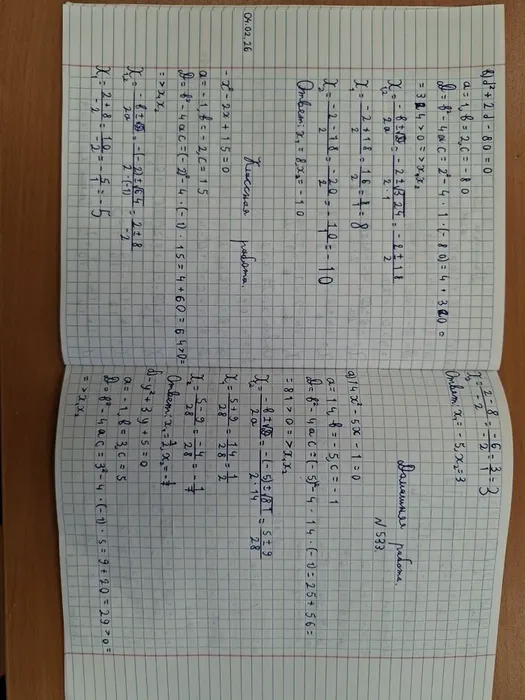 в) d²+2d-80=0
a=1, b=2, c=-80
D=b²-4ac=2²-4·1·(-80)=4+320=
=324>0=>x₁x₂
X₁,₂=-b±√D/2a=-2±√324/2·1=-2±18/2
X₁=-2+18/2=16/2=8/1=8
X₂=-2-18/2=-20/2=-10/1=-10
Ответ: x₁=8, x₂=-10
04.02.26
Классная работа.
-x²-2x+15=0
a=-1, b=-2, c=15
D=b²-4ac=(-2)²-4·(-1)·15=4+60=64>0=
=>x₁x₂
X₁,₂=-b±√D/2a=-(-2)±√64/2·(-1)=2±8/-2
X₁=2+8/-2=10/-2=-5/1=-5
X₂=2-8/-2=-6/-2=3/1=3
Ответ: x₁=-5, x₂=3
Домашняя работа.
N 533
а) 14x²-5x-1=0
a=14, b=-5, c=-1
D=b²-4ac=(-5)²-4·14·(-1)=25+56=
=81>0=>x₁x₂
X₁,₂=-b±√D/2a=-(-5)±√81/2·14=5±9/28
X₁=5+9/28=14/28=1/2
X₂=5-9/28=-4/28=-1/7
Ответ: x₁=1/2, x₂=-1/7
б) -y²+3y+5=0
a=-1, b=3, c=5
D=b²-4ac=3²-4·(-1)·5=9+20=29>0=
=>x₁x₂